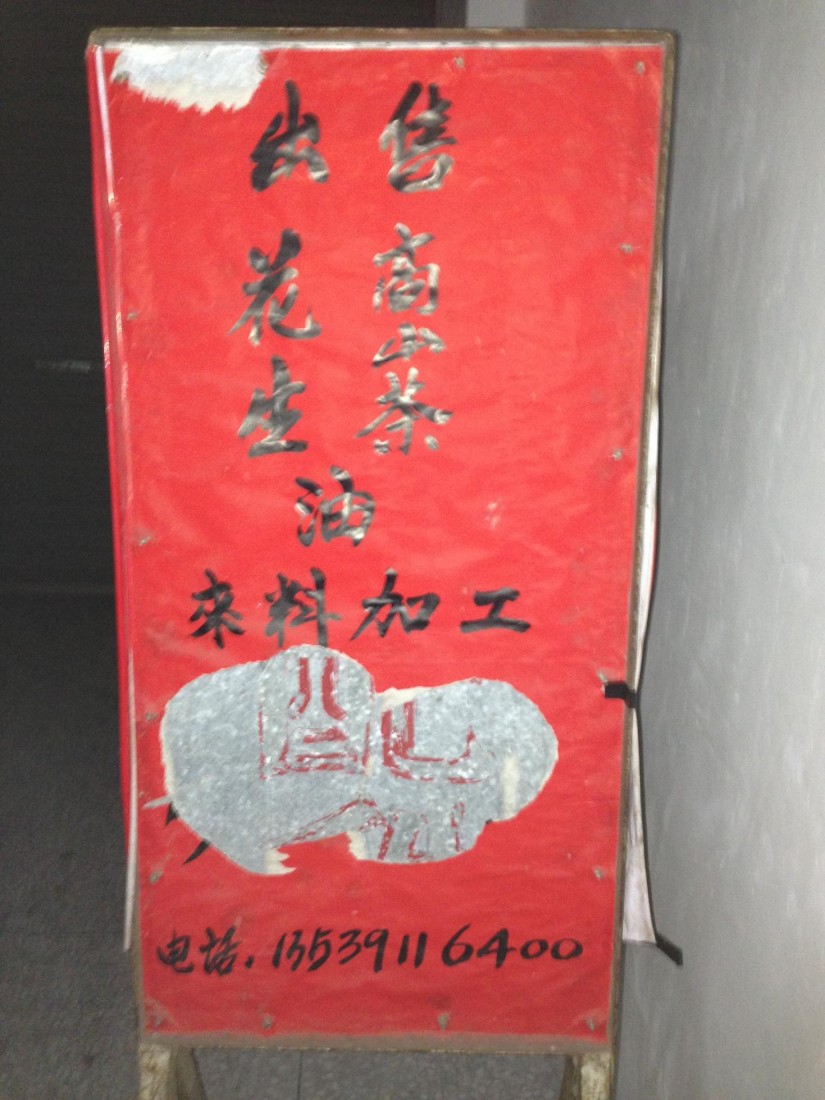 出售
花生油
高山茶
来料加工
电话.13539116400